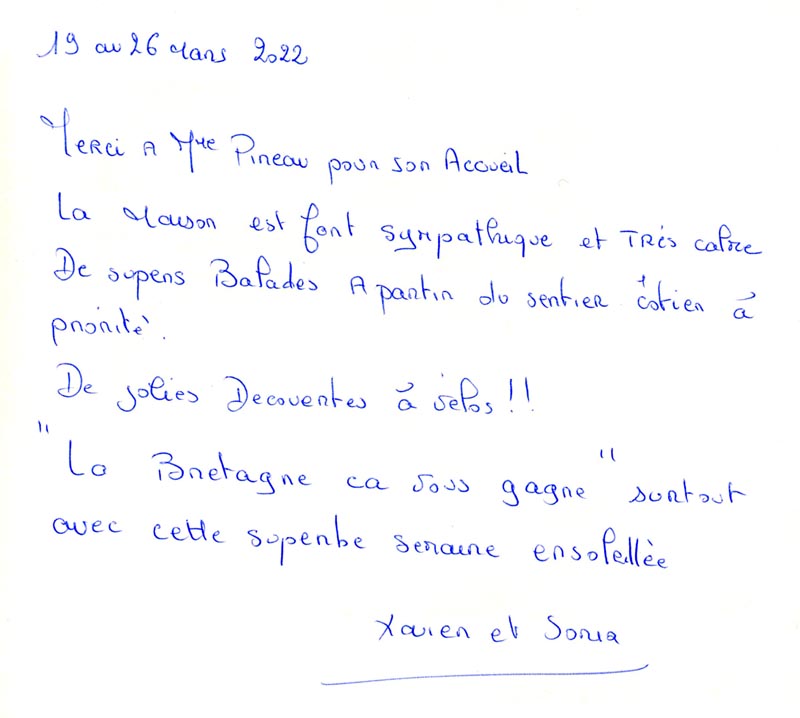 19 au 26 Mars 2022
Merci A Mme Pineau pour son Accueil
La Maison est fort sympathique et Très calme
De supers Balades A partir du sentier côtier à
priorité.
De jolies Decouvertes à vélos !!
"La Bretagne ca vous gagne" surtout
avec cette superbe semaine ensoleillèe
Xavier et Sonia